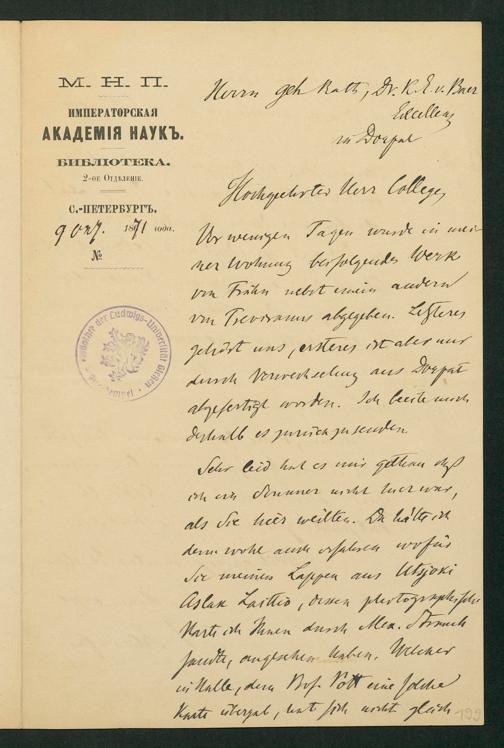 М. Н. П.
ИМПЕРАТОРСКАЯ
АКАДЕМІЯ НАУКЪ.
БИБЛІОТЕКА.
2-ое Отдѣленіе.
С.-ПЕТЕРБУРГЪ.
9 Окт. 1871 года.
№
Herrn Geh Rath, Dr. K. E. v. Baer
Excellenz
in Dorpat
Hochgeehrter Herr College,
Vor wenigen Tagen wurde in mei
ner Wohnung beifolgendes Werk
von Frähn nebst einem andern
von Treviranus abgegeben. Letzteres
gehört uns, ersteres ist aber nur
durch Verwechselung aus Dorpat
abgefertigt worden. Ich beeile mich
deshalb es zurückzusenden.
Sehr leid hat es mir gethan daß
ich im Sommer nicht hier war,
als Sie hier weilten. Da hätte ich
denn wohl auch erfahren wofür
Sie meinen Lappen aus Utsjoki
Aslak Laitio, dessen photographische
Karte ich Ihnen durch Alex. Strauch
sandte, angesehen haben. Welcker
in Halle, dem Prof. Pott eine solche
Karte übergab, hat sich nicht gleich
199